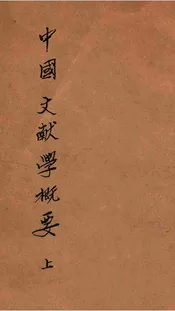 中國文献學概要 上